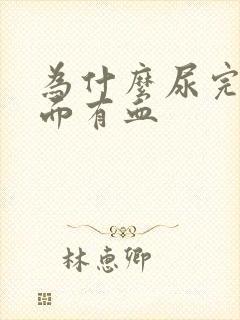 為什麼尿完
而有血
林惠卿